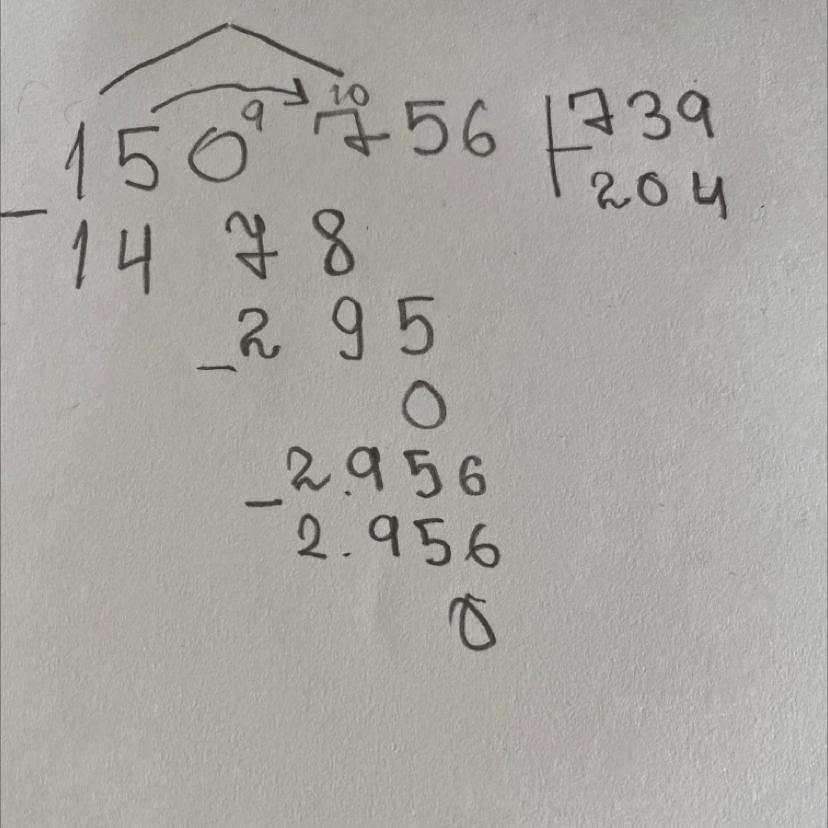 9 10
150 756 739
204
- 14 78
- 295
0
- 2.956
2.956
0